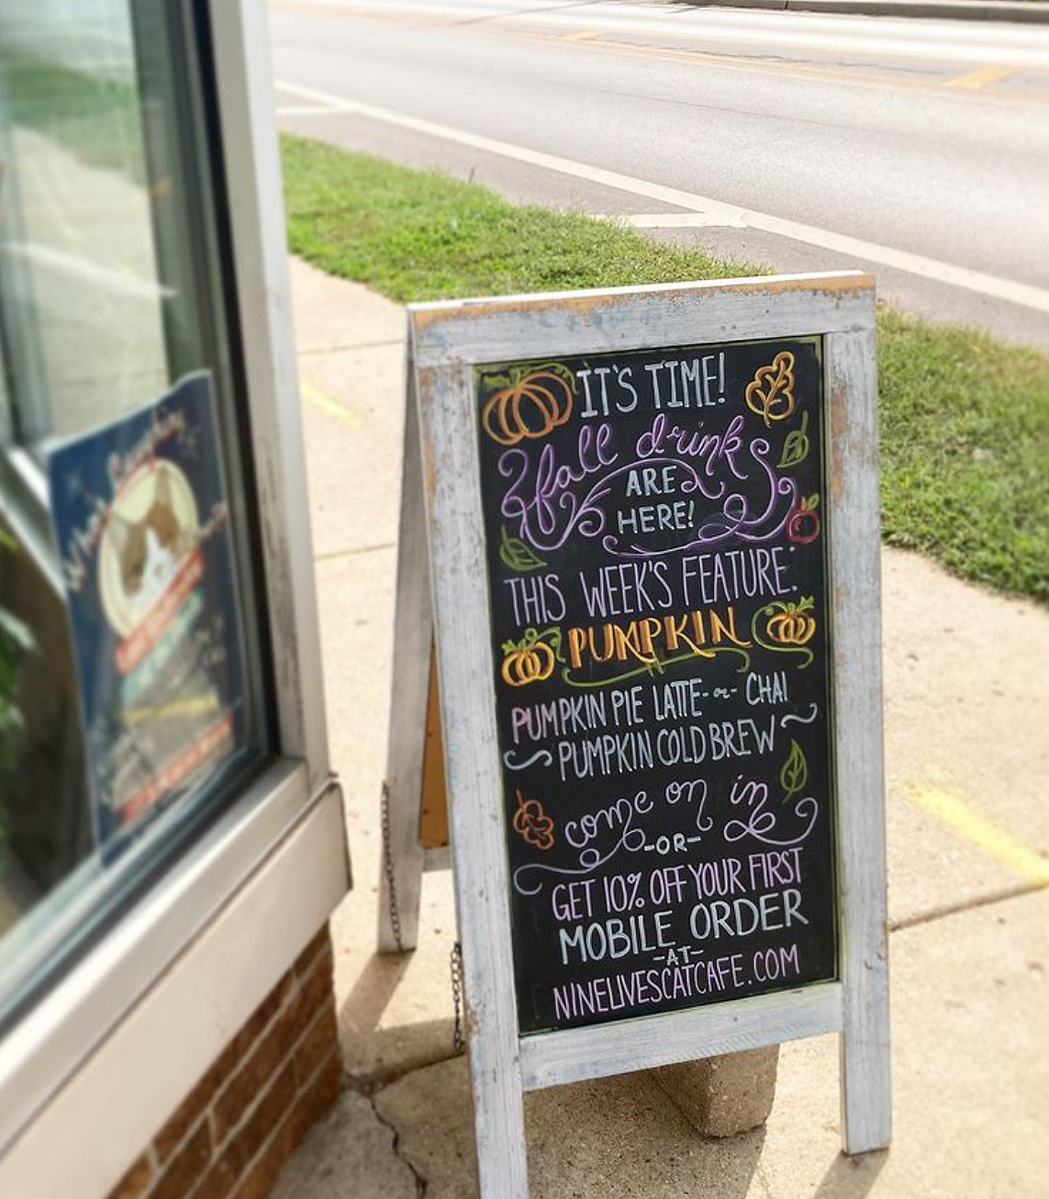 IT'S TIME!
fall drinks
ARE
HERE!
THIS WEEK'S FEATURE:
PUMPKIN
PUMPKIN PIE LATTE -or- CHAI
~ PUMPKIN COLD BREW ~
come on in
-OR-
GET 10% OFF YOUR FIRST
MOBILE ORDER
-AT-
NINELIVESCATCAFE.COM